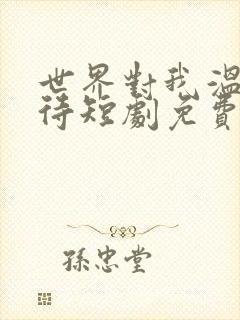 世界對我溫
待短劇免費
孫忠堂